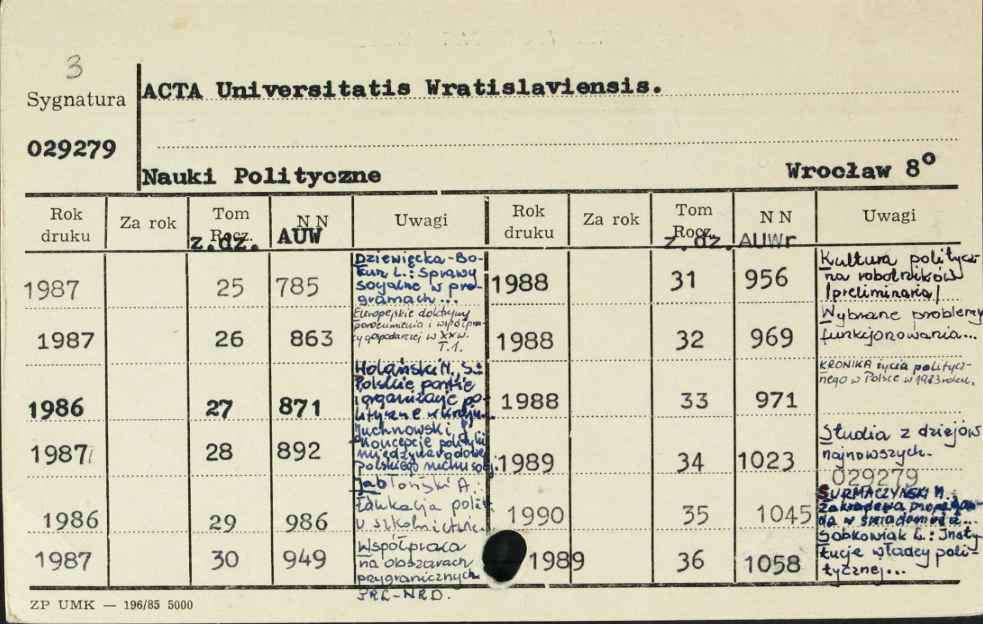 3
Sygnatura
ACTA Universitatis Wratislaviensis.
029279
Nauki Polityczne Wrocław 8°
Rok druku Za rok Tom Rocz. N N Uwagi Rok druku Za rok Tom Rocz. N N Uwagi
z.dz. AUW z.dz. AUWr
1987 25 785
Dziewięcka-Bo-
kun L.: Sprawy
socjalne w pro-
gramach...
1987 26 863
Europejskie doktryny
porozumienia i współpra-
cy gospodarczej w XX w.
T.1.
1986 27 871
Holański N, S.:
Polskie partie
i organizacje po-
lityczne w kraju
1987 28 892
Juchnowski J.
Koncepcje polityki
międzynarodowej
polskiego ruchu soc.
1986 29 986
Jabłoński A.:
Edukacja polit.
w szkolnictwie.
1987 30 949
Współpraca
na obszarach
przygranicznych
PRL-NRD.
1988 31 956
Kultura politycz-
na robotników
/preliminaria/
1988 32 969
Wybrane problemy
funkcjonowania...
1988 33 971
KRONIKA życia politycz-
nego w Polsce w 1983 roku.
1989 34 1023
Studia z dziejów
najnowszych.
029279
1990 35 1045
SURMACZYŃSKI M.
Zakładowa propagan-
da w świadomości...
1989 36 1058
Sobkowiak L.: Insty-
tucje władzy poli-
tycznej...
ZP UMK — 196/85 5000